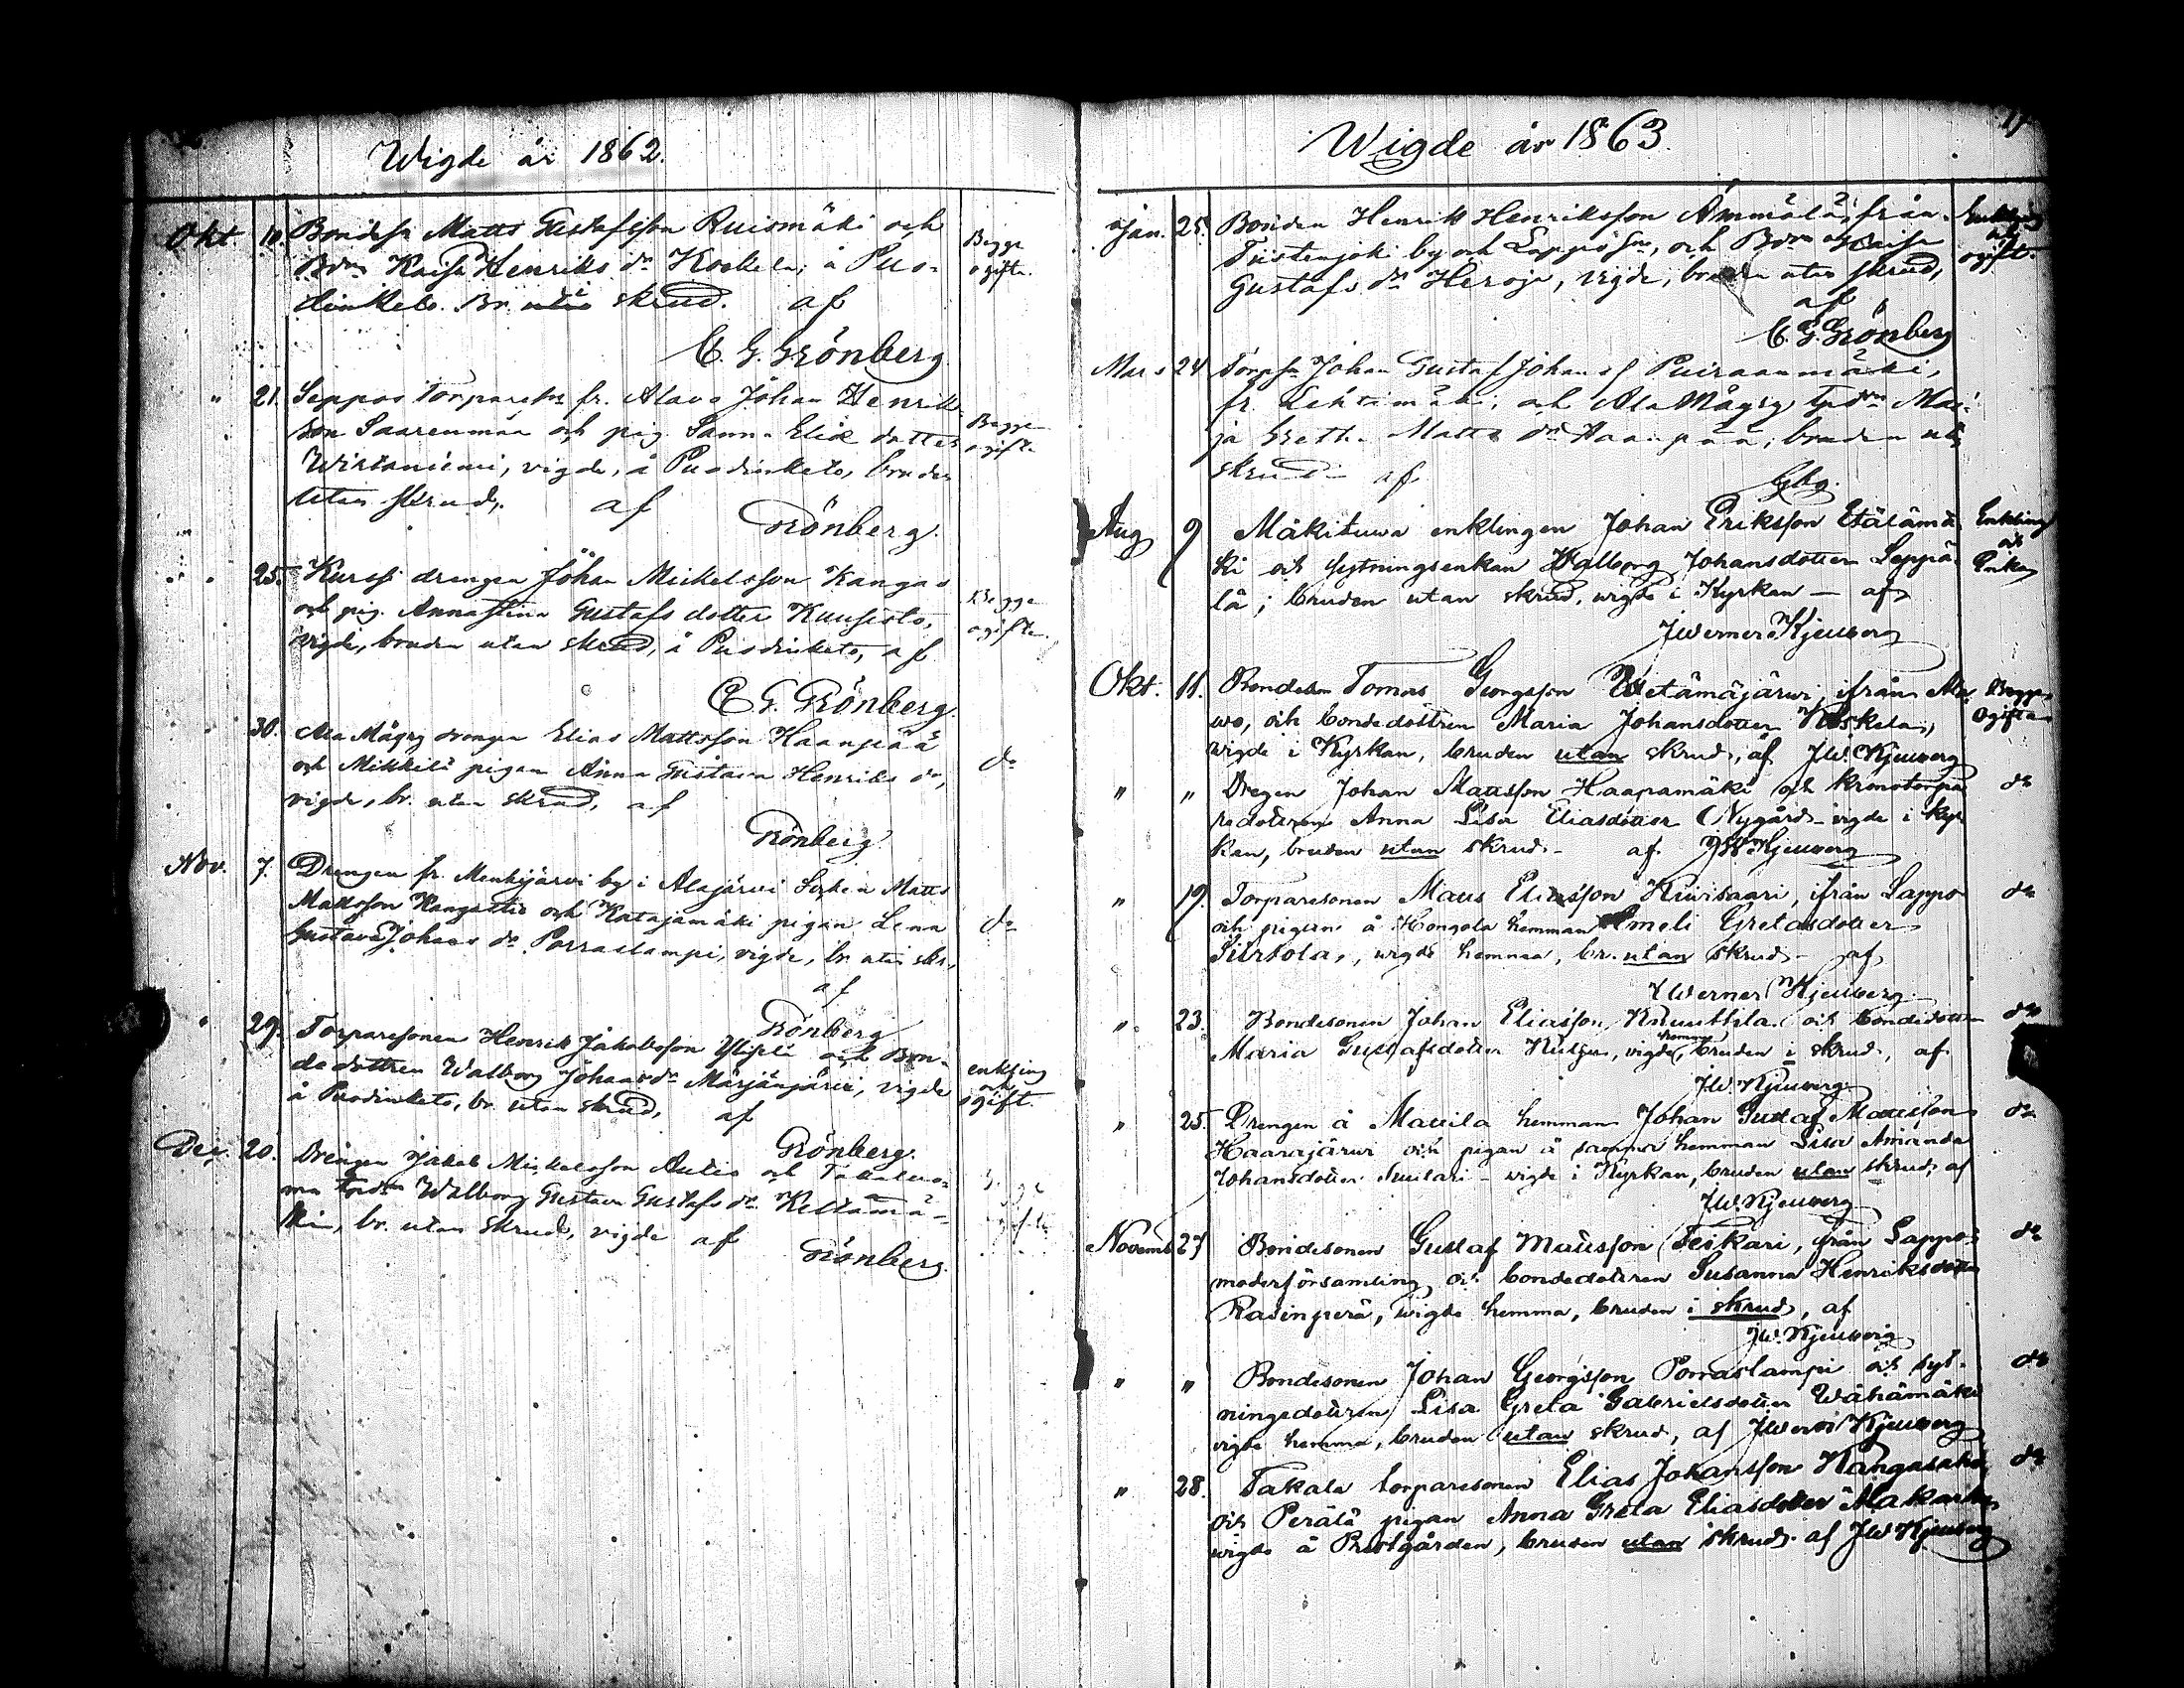 Wigde år 1862.
Okt. 10. Bondesn Matts Gustafsson Ruismäki och Begge
Bdm Kaisa Henriks dr Koskela; å Pus- ogifte.
dinketo. Br. utan skrud. af
C. G. Grönberg
" 21. Seppos torparesn fr. Alavo Johan Henriks-
son Saarenmaa och pig. Sanna Elias dotter Begge
Wirtaniemi, vigde, å Pusdinketo, bruden ogifte
utan skrud. af
Grönberg.
" 25. Kurssi drengen Johan Mickelsson Kangas
och pig. Anna Stina Gustafs dotter Kuusisto, Begge
vigde, bruden utan skrud, å Pusdinketo, af ogifte.
C. G. Grönberg.
30. Ala Mågry drengen Elias Mattsson Haanpää
och Mikkilä pigan Anna Gustava Henriks dr, do
vigde, br. utan skrud, af
Grönberg
Nov. 7. Drengen fr. Menkijärvi by i Alajärvi Sokn Matts
Mattsson och Katajamäki pigan Lena do
Gustava Johans dr Porraslampi, vigde, br. utan skr.,
af
Grönberg
" 29. Torparesonen Henrik Jakobsson och Bon-
dedottren Walborg Johans dr Märjänjärvi, vigde enkling och
å Pusdinketo, br. utan skrud, af ogift.
Grönberg.
Dec. 20. Drengen Jakob Mickelsson Autio och
Walborg Gustava Gustafs dr Keltamä-
ki, br. utan skrud, vigde af
Grönberg.
Wigde år 1863.
Jan. 25. Bonden Henrik Henriksson Ämmälä, från Enkling
Tiistenjoki by och Lappo Sn, och Bdm Kaisa och
Gustafs dr Heroja, vigde, bruden utan skrud, ogift.
af
C. G. Grönberg
Mars 24 Torpsn Johan Gustaf Johans s. Puiraanmäki,
fr. Lehtimäki; och Ala Mågry tpdm Mar-
ja Greta Matts dr Haanpää; bruden utan
skrud af
Gbg.
Aug 9 Mäkituwa enklingen Johan Eriksson Etälämä- Enkling
ki och sytningsenkan Walborg Johansdotter Leppä- och
lä; bruden utan skrud, wigde i Kyrkan — af Enka
J Werner Kjemberg
Okt. 11. Bondeson Tomas Georgsson Wetämäjärwi, ifrån Ala- Begge
wo, och bondedottren Maria Johansdotter Koskela, Ogifta
wigde i Kyrkan, bruden utan skrud, af J.W. Kjemberg
" " Drengen Johan Mattsson Haapamäki och kronotorpa- do
redottren Anna Lisa Eliasdotter Nygård — wigde i kyr-
kan, bruden utan skrud — af JW Kjemberg
" 19. Torparesonen Matts Eliasson Kiwisaari, ifrån Lappo do
och pigan å Hongola hemman Ameli Gretasdotter
Siirtola, wigde hemma, br. utan skrud — af
J Werner Kjemberg
" 23. Bondesonen Johan Eliasson Knuuttila och bondedottren do
Maria Gustafsdotter, vigde hemma, bruden i skrud, af
J.W. Kjemberg
" 25. Drengen å Mattila hemman Johan Gustaf Mattsson do
Haarajärwi och pigan å samma hemman Lisa Amanda
Johansdotter — wigde i Kyrkan, bruden utan skrud, af
J.W. Kjemberg
Novemb. 27 Bondesonen Gustaf Mattsson Teikari, från Lappo do
moderförsamling och bondedottren Susanna Henriksdotter
Rasinperä, wigde hemma, bruden i skrud, af
J.W. Kjemberg
" " Bondesonen Johan Georgsson Porraslampi och syt- do
ningedottren Lisa Greta Gabrielsdotter Wähämäki
vigde hemma, bruden utan skrud, af J Werner Kjemberg
" 28. Takala torparesonen Elias Johansson Kangasaho do
och Perälä pigan Anna Greta Eliasdotter
wigde å Prestgården, bruden utan skrud. af J.W. Kjemberg